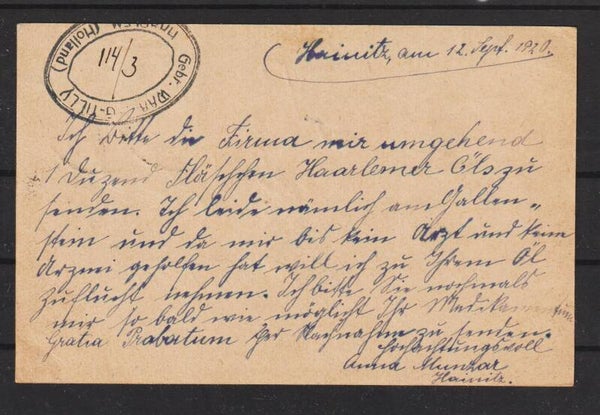 Hainitz, am 12. Sept. 1920.
Gebr. WAN G-TILLY
HAARLEM (Holland)
114/3
Ich bitte die Firma mir umgehend
1 Duzend Fläschchen Haarlemer Öls zu
senden. Ich leide nämlich am Gallen„
stein und da mir bis kein Arzt und keine
Arznei geholfen hat will ich zu Ihrem Öl
zuflucht nehmen. Ich bitte Sie nochmals
mir so bald wie möglicht Ihr Medikamentum
Gratia Probatum per Nachnahme zu senden.
Hochachtungsvoll
Anna Munzar
Hainitz.